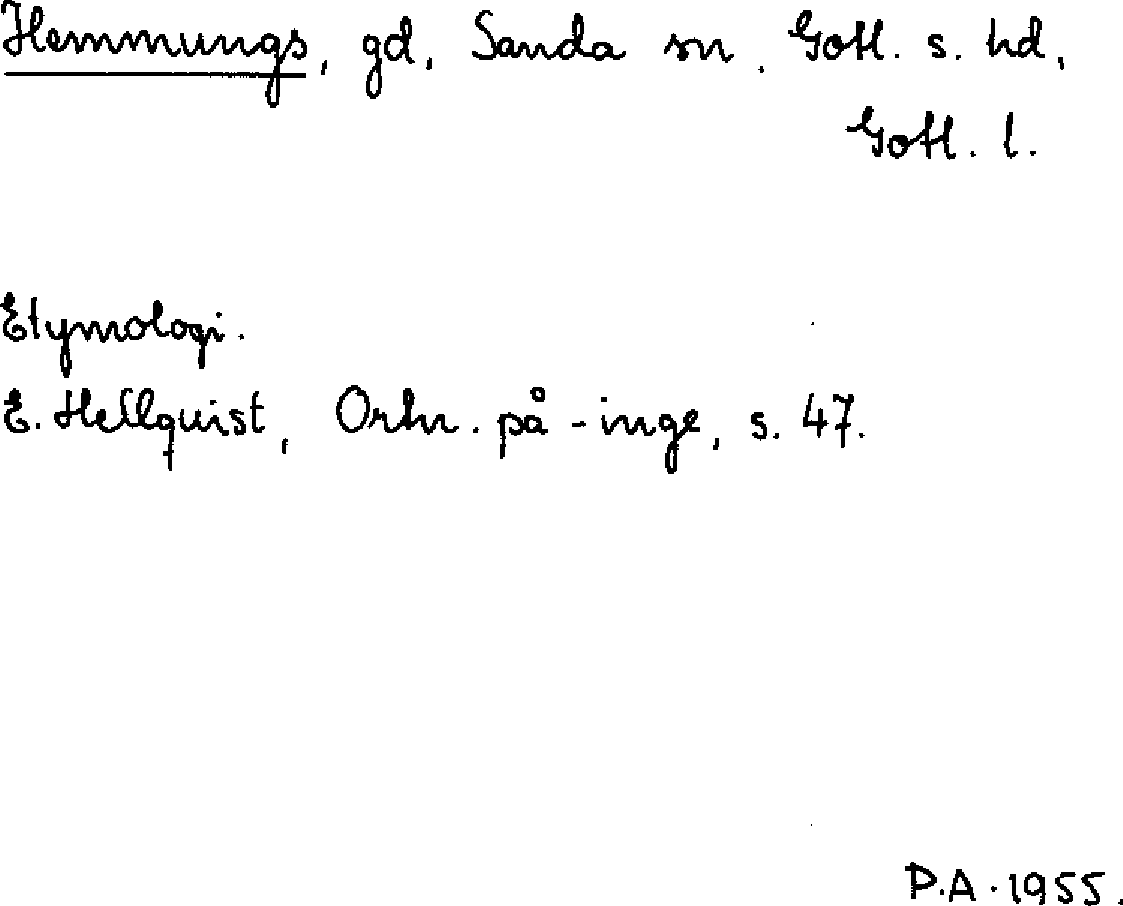 Hemmungs, gd, Sanda sn. Gotl. s. hd,
Gotl. l.
Etymologi.
E. Hellquist, Ortn. på -inge, s. 47.
P.A. 1955.